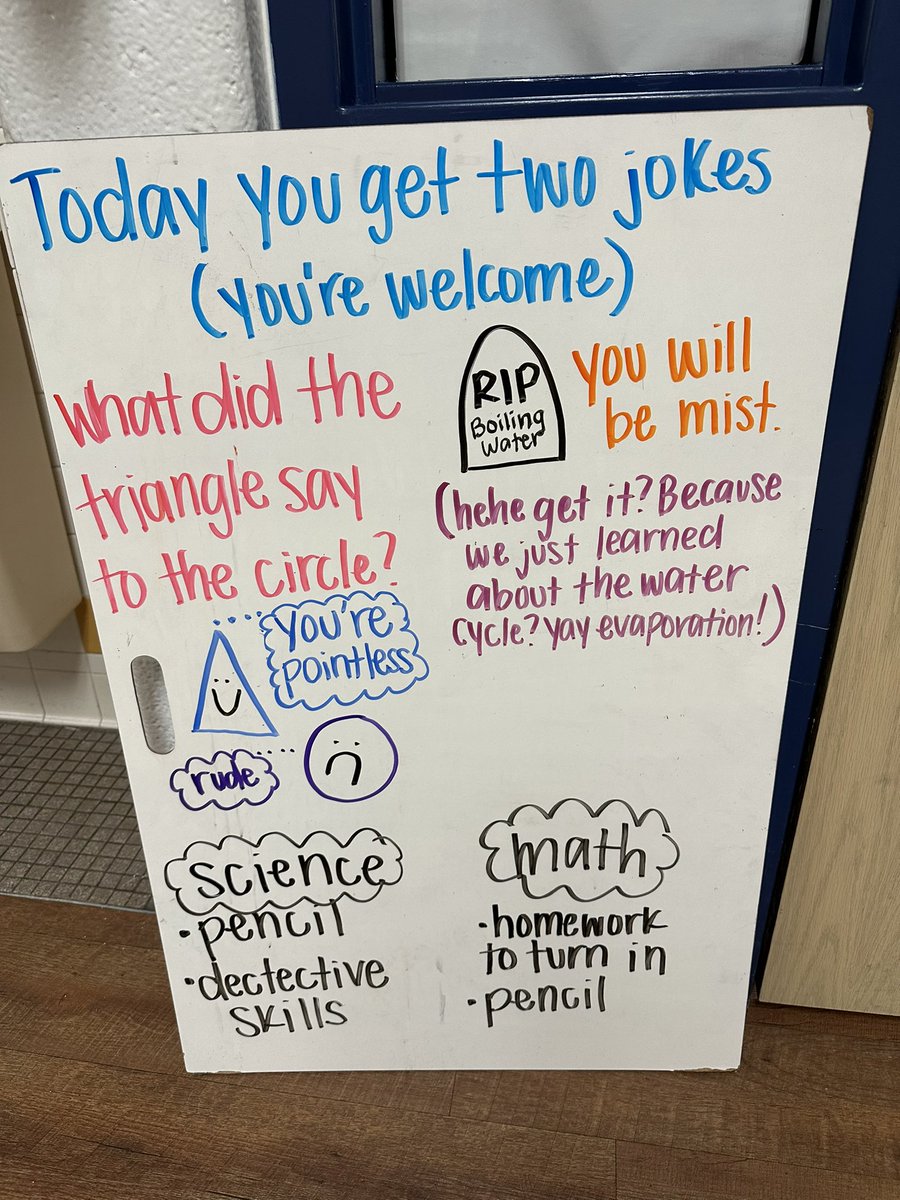 Today you get two jokes
(you're welcome)
What did the
triangle say
to the circle?
you're
pointless
rude
RIP
Boiling
Water
you will
be mist.
(hehe get it? Because
we just learned
about the water
cycle? Yay evaporation!)
science
• pencil
• dectective
skills
math
• homework
to turn in
• pencil